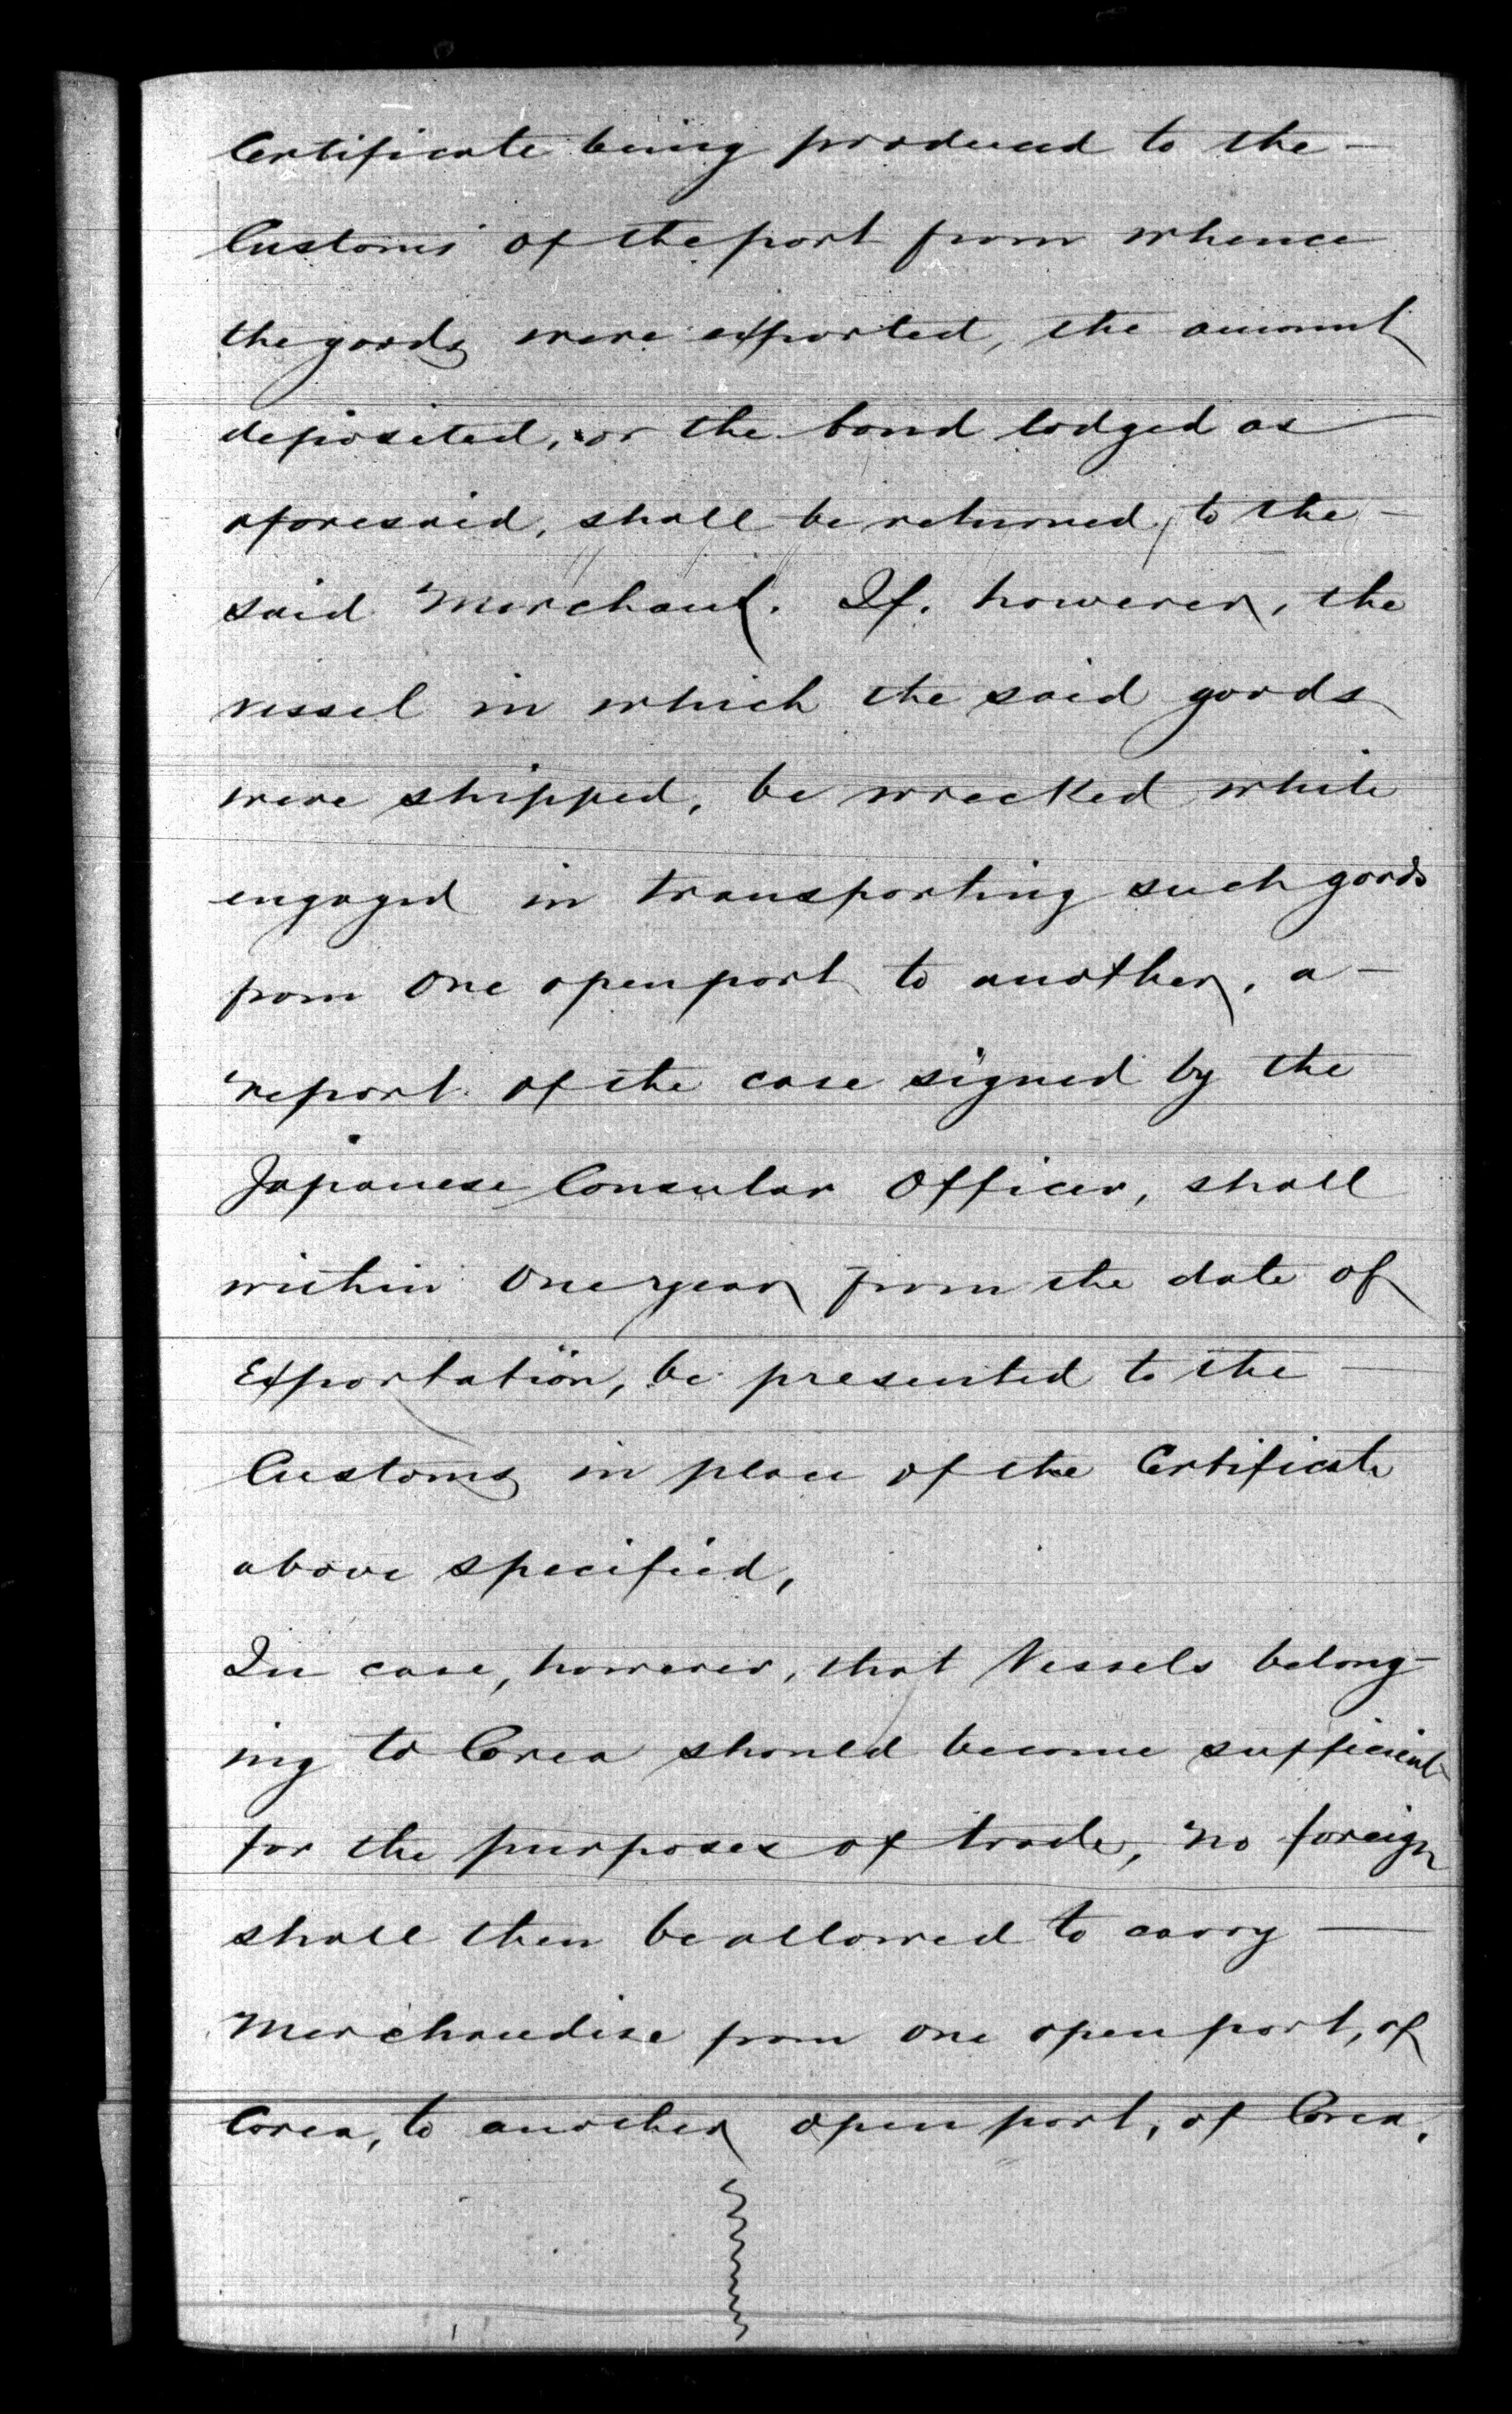 Certificate being produced to the —
Customs of the port from whence
the goods were exported, the amount
deposited, or the bond lodged as
aforesaid, shall be returned, to the —
said Merchant. If, however, the
vessel in which the said goods
were shipped, be wrecked while
engaged in transporting such goods
from One open port to another, a —
report of the case signed by the
Japanese Consular Officer, shall
within One year from the date of
Exportation, be presented to the —
Customs in place of the Certificate
above specified,
In case, however, that Vessels belong-
ing to Corea should become sufficient
for the purposes of trade, no foreign
shall then be allowed to carry —
Merchandise from one open port, of
Corea, to another open port, of Corea.